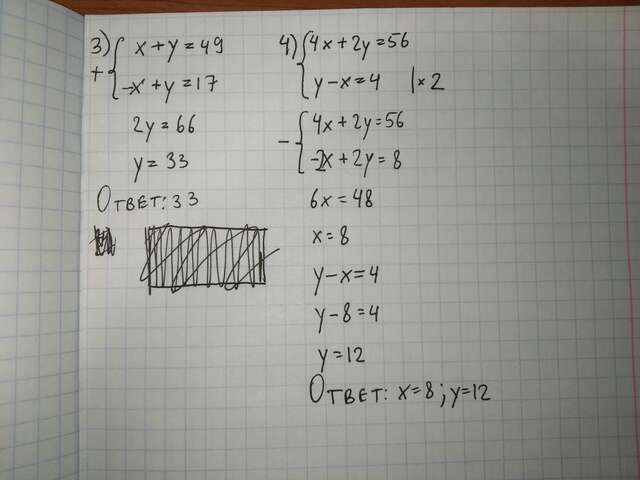 3) x+y=49
+ -x+y=17
2y=66
y=33
Ответ: 33
4) 4x+2y=56
y-x=4 |×2
- 4x+2y=56
-2x+2y=8
6x=48
x=8
y-x=4
y-8=4
y=12
Ответ: x=8; y=12